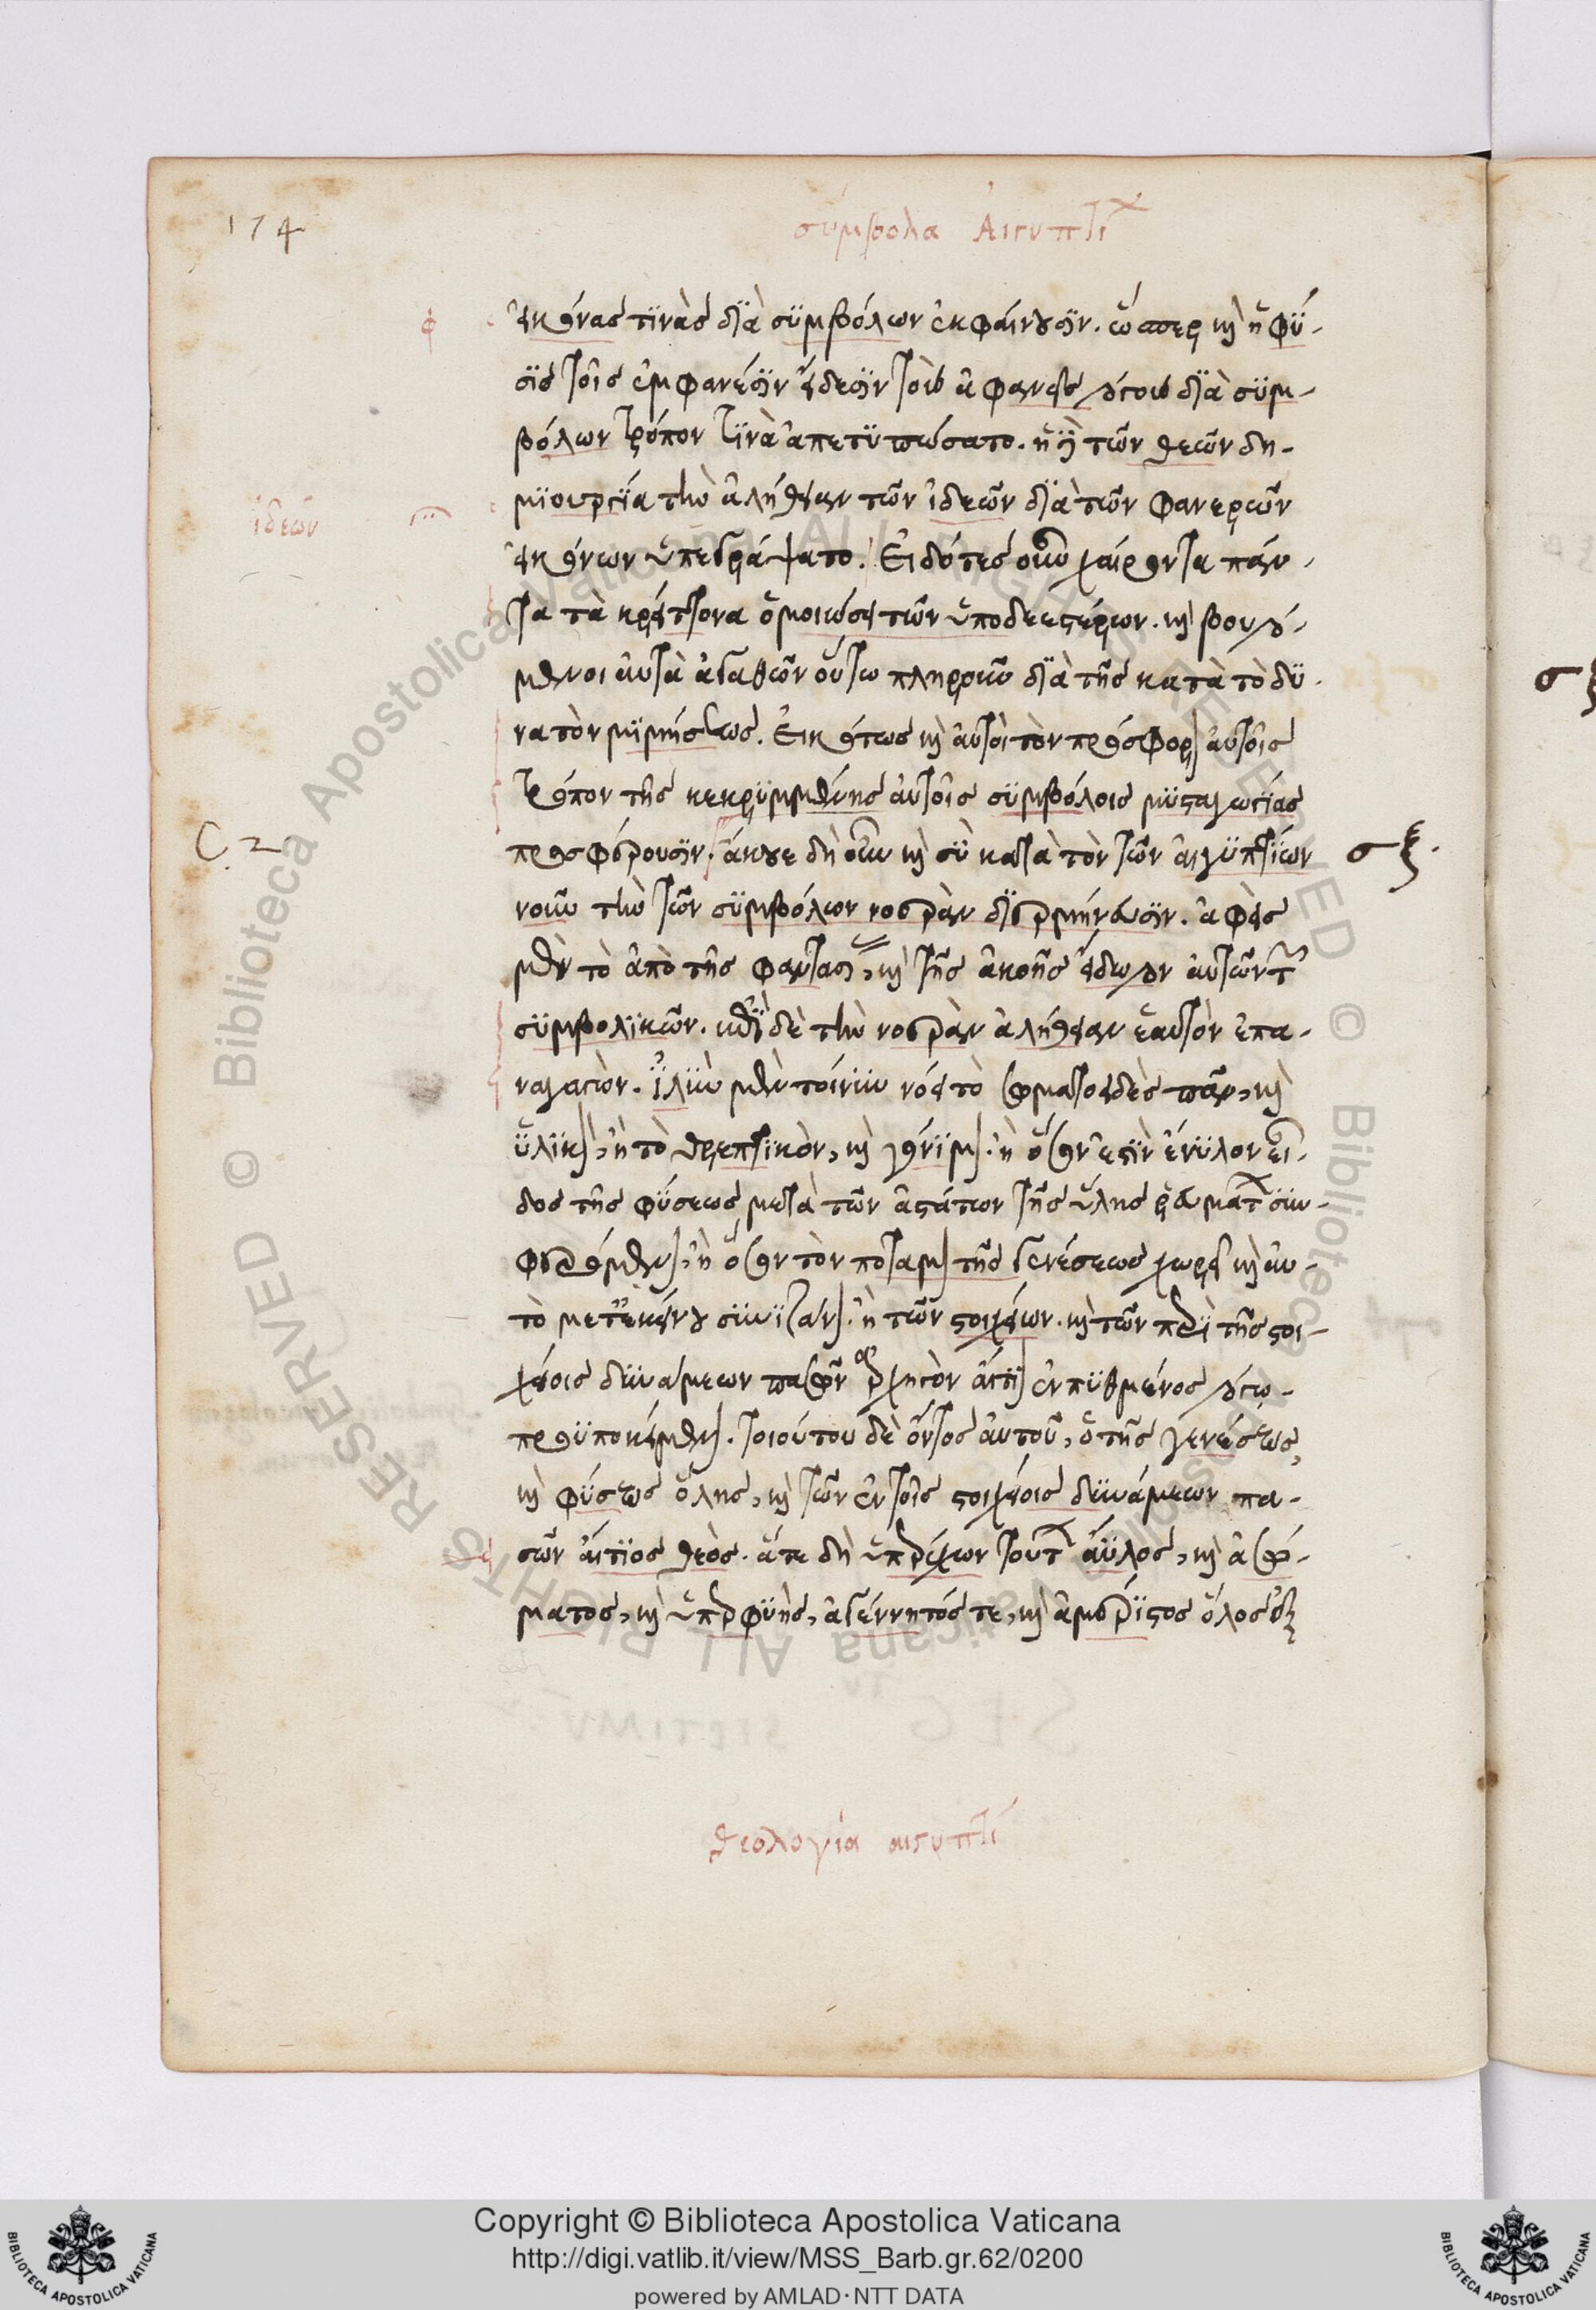 174
σύμβολα Αιγυπτι
εἰκόνας τϊνὰς δϊὰ σϋμβόλων ἐκφαίνουσϊν. ὥσπερ καὶ ἡ φϋ-
σϊς τοῖς ἐμφανέσϊν εἴδεσϊν τοὺς ἀφανεῖς λόγους δϊὰ σϋμ-
βόλων τρόπον τϊνὰ ἀπετϋπώσατο. ἡ δὲ τῶν θεῶν δη-
μϊουργϊα τὴν ἀλήθειαν τῶν ἰδεῶν δϊὰ τῶν φανερῶν
ἰδεῶν
εἰκόνων ὑπεγράψατο. Εἰδότες οὖν χαίροντα πάν-
τα τὰ κρείττονα ὁμοιώσει τῶν ὑποδεεστέρων. καὶ βουλό-
μενοι αὐτὰ ἀγαθῶν οὕτω πληροῦν δϊὰ τῆς κατὰ τὸ δϋ-
νατὸν μϊμήσεως. Εἰκότως καὶ αὐτοὶ τὸν πρόσφορον αὐτοῖς
τρόπον τῆς κεκρϋμμένης αὐτοῖς σϋμβόλοις μϋσταγωγϊας
C. 2
προσφέρουσϊν. ἄκουε δὴ οὖν καὶ σὺ κατὰ τὸν τῶν αἰγϋπτίων
σξ.
νοῦν τὴν τῶν σϋμβόλων νοερὰν δϊερμήνευσϊν. ἀφεὶς
μὲν τὸ ἀπὸ τῆς φαντασίας, καὶ τῆς ἀκοῆς εἴδωλον αὐτῶν τῶν
σϋμβολϊκῶν. ἐπὶ δὲ τὴν νοερὰν ἀλήθειαν ἑαυτὸν ἐπα-
ναγαγών. ϊλὺν μὲν τοίνϋν νόει τὸ σωματοειδὲς πᾶν, καὶ
ὑλϊκὸν, ἢ τὸ θρεπτϊκὸν, καὶ γόνϊμον. ἢ ὅσον ἐστὶν ἐνϋλον εἶ-
δος τῆς φϋσεως μετὰ τῶν ἀστάτων τῆς ὕλης ῥευμάτων σϋμ-
φερόμενον. ἢ ὅσον τὸν ποταμὸν τῆς γενέσεως χωρεῖ καὶ αὐ-
τὸ μετ' ἐκείνου σϋνϊζάνον. ἢ τῶν στοιχείων. καὶ τῶν περὶ τῆς στοι-
χείοις δϋνάμεων πασῶν ἀρχηγὸν αἴτιον ἐν πϋθμένος λόγω
προϋποκείμενον. τοιούτου δὲ ὄντος αὐτοῦ, ὁ τῆς γενέσεως,
καὶ φϋσεως ὅλης, καὶ τῶν ἐν τοῖς στοιχείοις δϋνάμεων πα-
σῶν αἴτϊος θεὸς. ἅτε δὴ ὑπερέχων τούτων ἄϋλος, καὶ ἀσώ-
ματος, καὶ ὑπερφϋὴς, ἀγέννητός τε, καὶ ἀμέρϊστος ὅλος ἐξ
θεολογία αιγυπτί
Copyright © Biblioteca Apostolica Vaticana
http://digi.vatlib.it/view/MSS_Barb.gr.62/0200
powered by AMLAD·NTT DATA